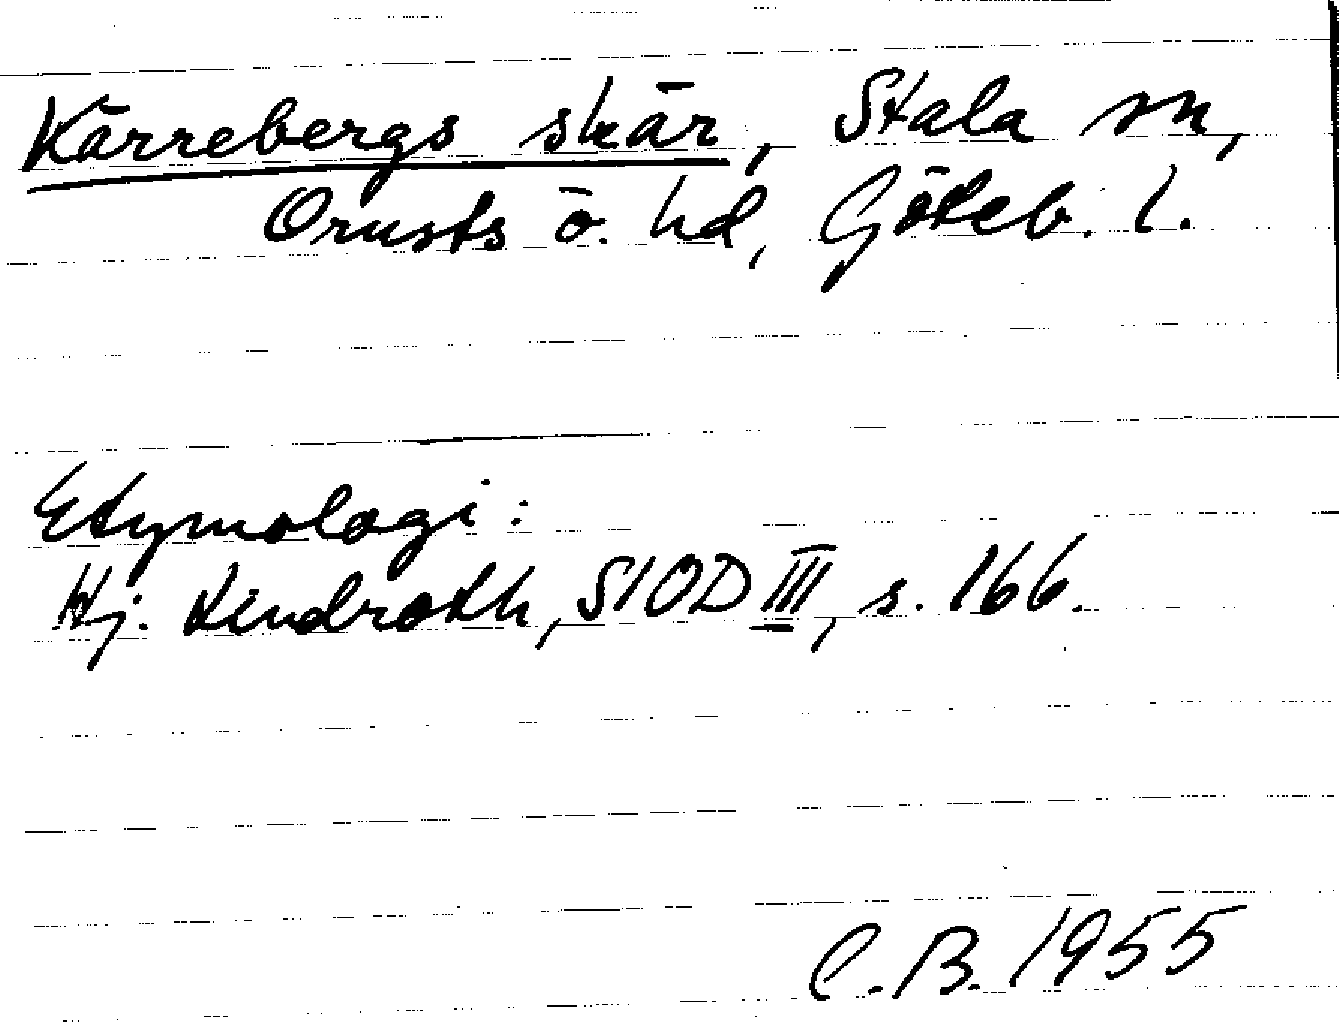 Kärrebergs skär, Stala sn,
Orusts ö. hd, Göteb. l.
Etymologi:
Hj. Lindroth, SIOD III, s. 166.
C. B. 1955